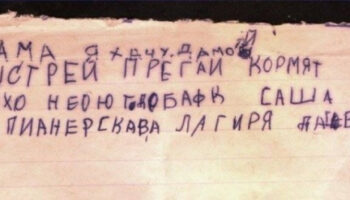 АМА Я ХАЧУ ДАМОЙ
ЫСТРЕЙ ПРЕГАЙ КОРМЯТ
ХО НЕОЮТ ДОБАФК САША
ПИАНЕРСКАВА ЛАГИРЯ